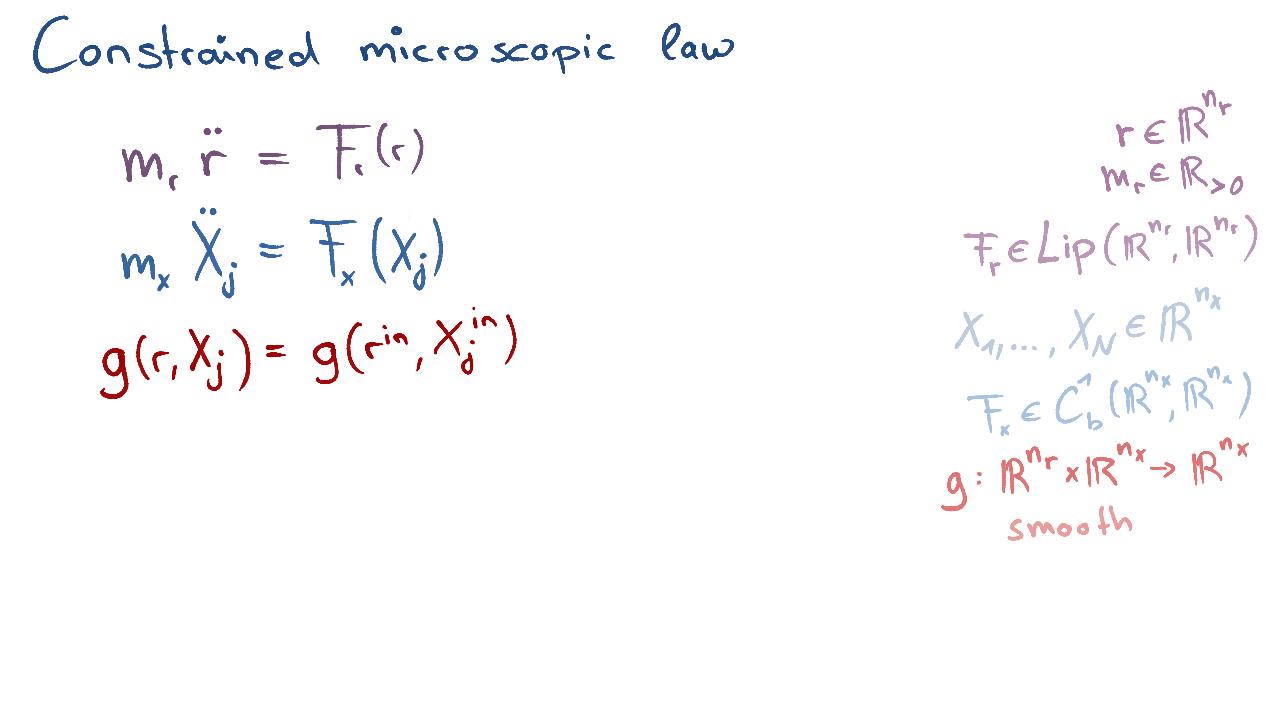 Constrained microscopic law
m_r r̈ = F_r(r)
m_x Ẍ_j = F_x(X_j)
g(r, X_j) = g(r^in, X_j^in)
r ∈ ℝ^n_r
m_r ∈ ℝ_>0
F_r ∈ Lip(ℝ^n_r, ℝ^n_r)
X_1, ..., X_N ∈ ℝ^n_x
F_x ∈ C_b^1(ℝ^n_x, ℝ^n_x)
g : ℝ^n_r × ℝ^n_x → ℝ^n_x
smooth